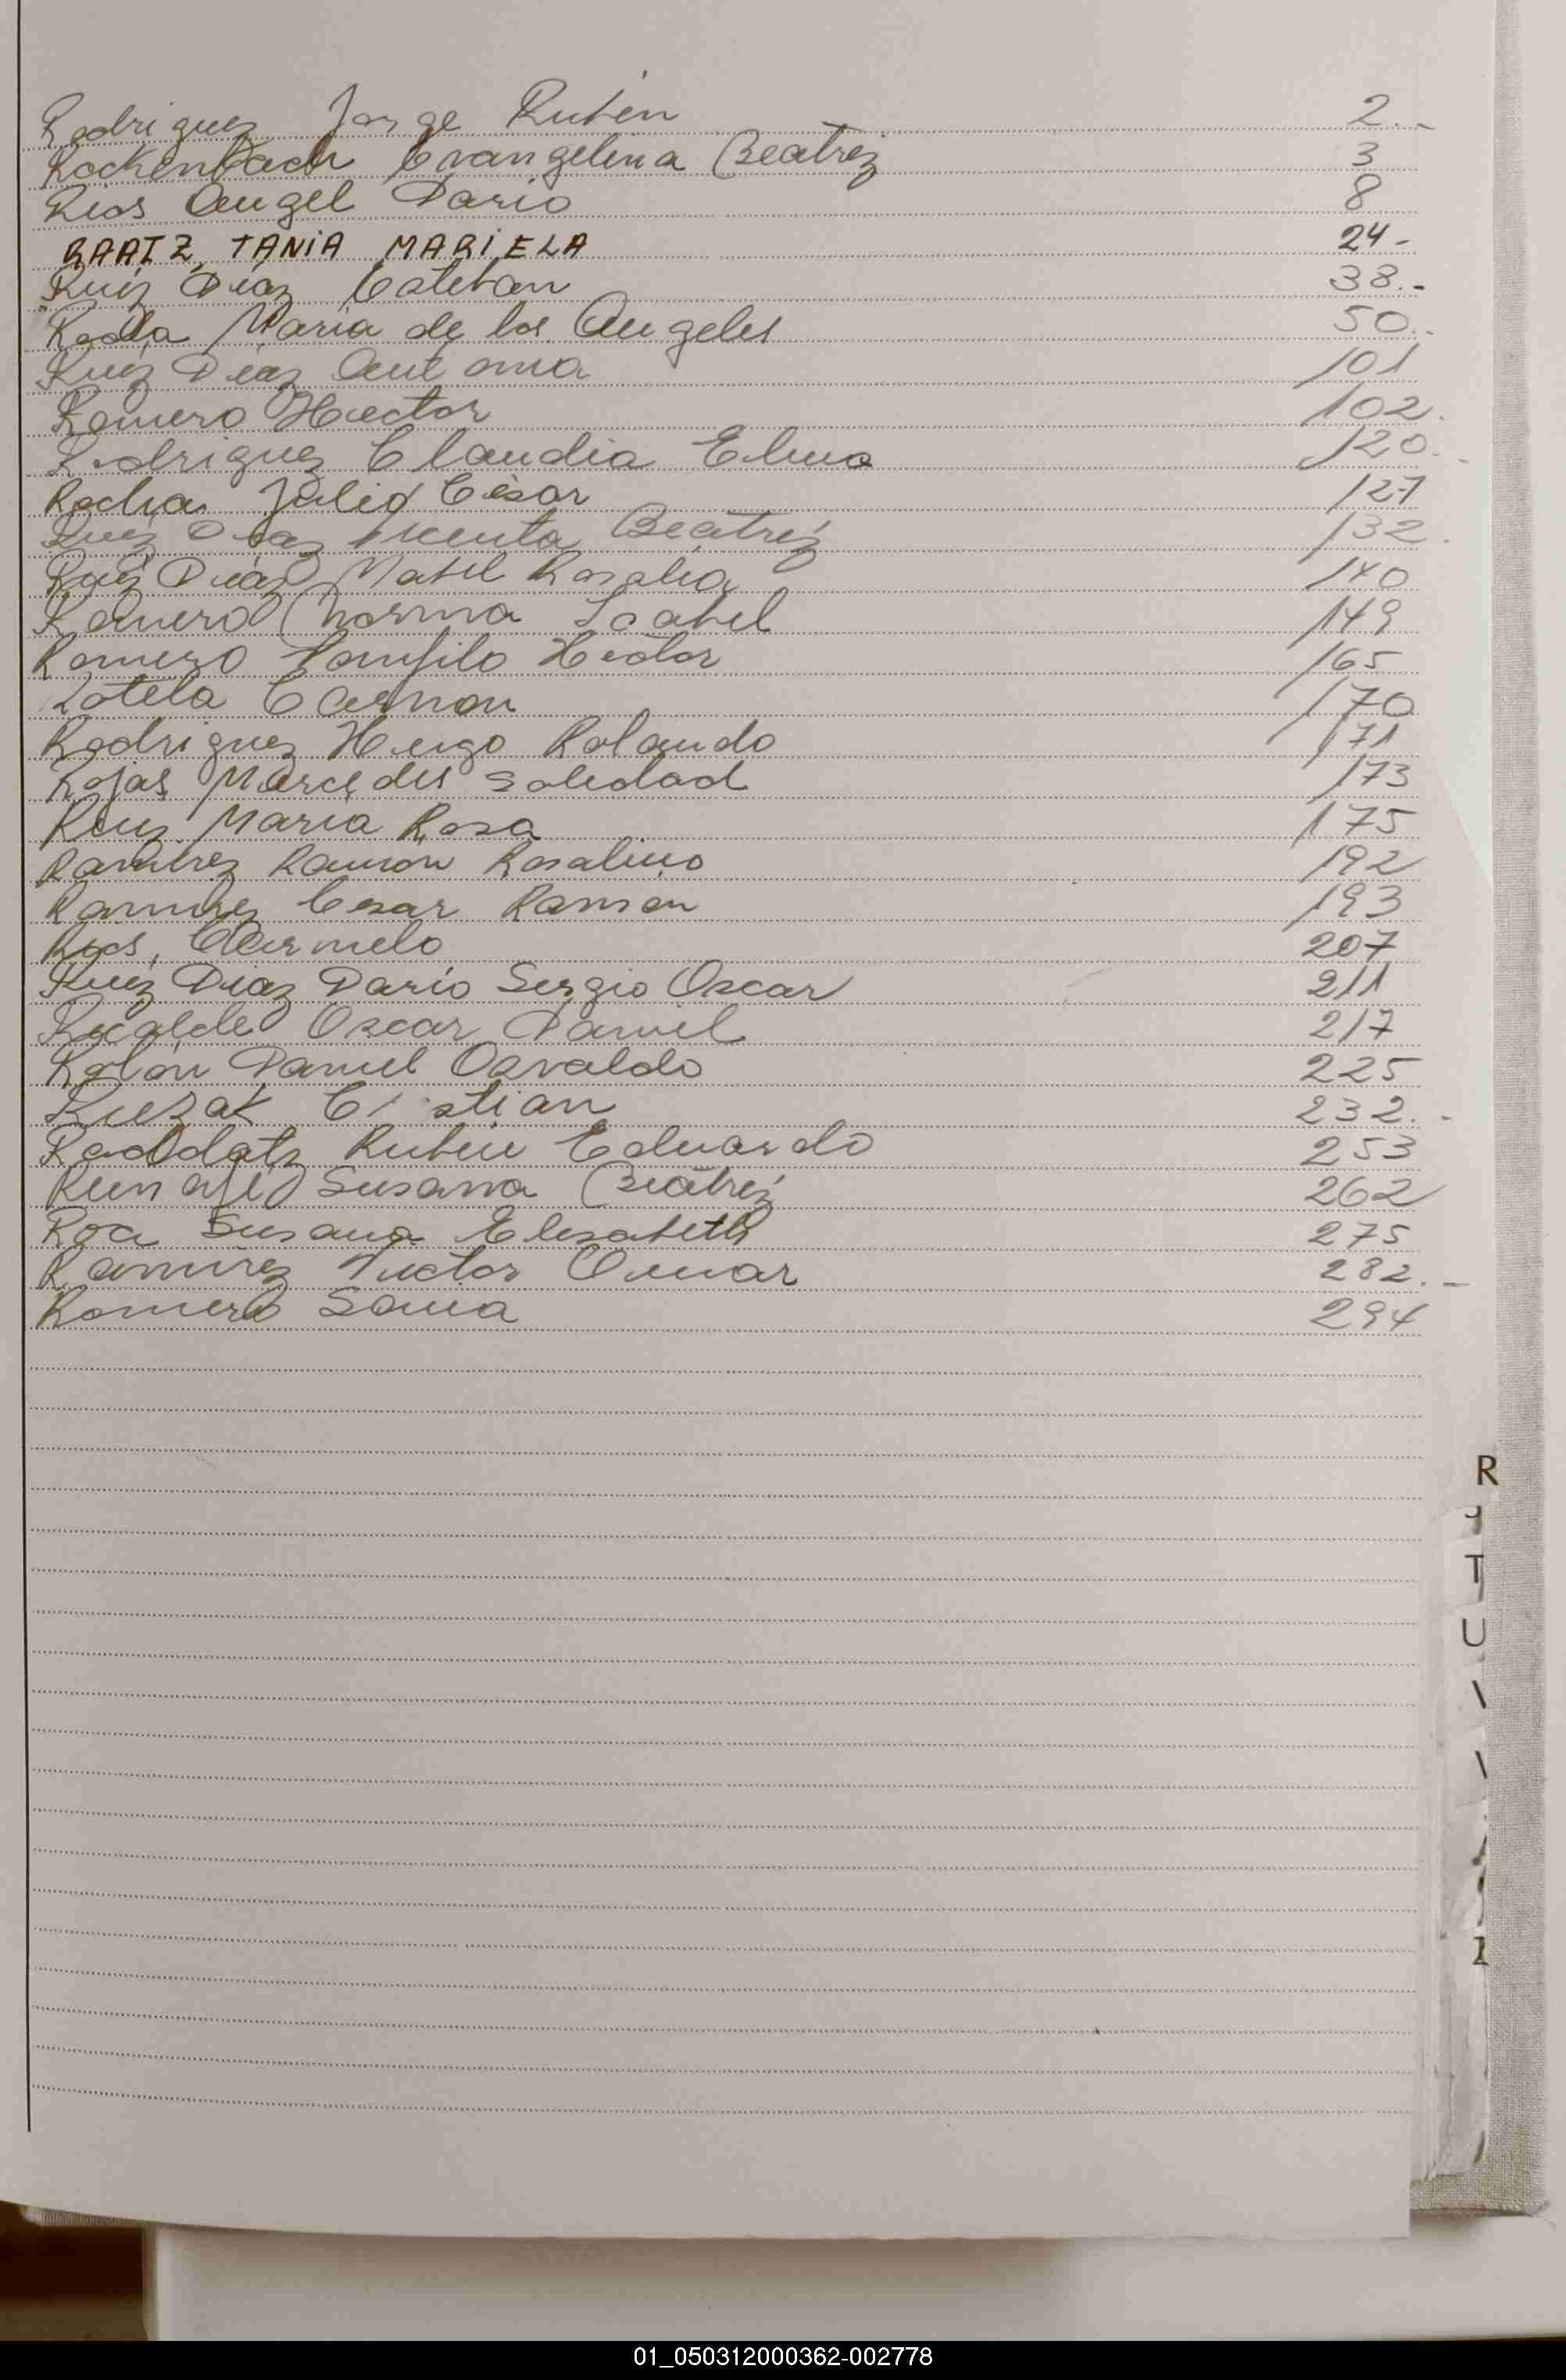 Rodriguez Jorge Rubén 2.-
Rockenbach Evangelina Beatriz 3
Rios Angel Dario 8
RAATZ, TANIA MARIELA 24-
Ruiz Diaz Esteban 38.-
Rodla Maria de los Angeles 50.-
Ruiz Diaz Antonia 101
Romero Hector 102.
Rodriguez Claudia Elena 120.-
Rocha Julio César 127
Ruiz Diaz Vicenta Beatriz 132.
Ruiz Diaz Mabel Rosalia 140
Romero Norma Isabel 149
Romero Pamfilo Hector 165
Rotela Carmen 170
Rodriguez Hugo Rolando 171
Rojas Mercedes Soledad 173
Ruiz Maria Rosa 175
Ramirez Ramón Rosalino 192
Ramirez Cesar Ramon 193
Rios, Carmelo 207
Ruiz Diaz Dario Sergio Oscar 211
Recalde Oscar Daniel 217
Rolón Daniel Osvaldo 225
Ruzak Cristian 232.-
Raddatz Ruben Eduardo 253
Susana Beatriz 262
Roa Susana Elisabeth 275
Ramirez Victor Omar 282.-
Romero Sonia 294
R
T
U
01_050312000362-002778